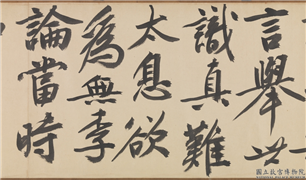 言舉世
識真難
太息欲
為無李
論當時
國立故宮博物院